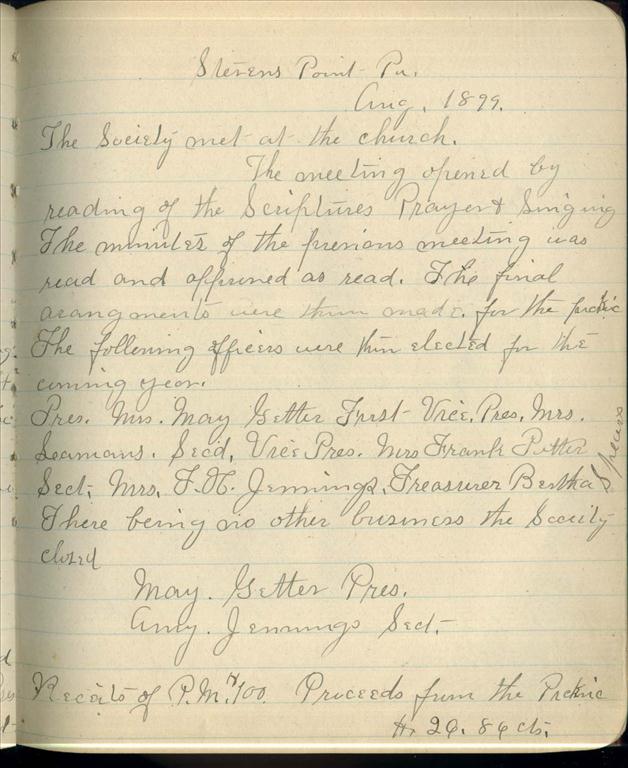 Stevens Point Pa.
Aug. 1899.
The Society met at the church.
The meeting opened by
reading of the Scriptures Prayer & Singing
The minutes of the previous meeting was
read and approved as read. The final
arangments were then made. for the picknic
The following officers were then elected for the
coming year.
Pres. Mrs. May Getter First Vice. Pres. Mrs.
Seamans. Secd, Vice Pres. Mrs Frank
Sect, Mrs. F. H. Jennings, Treasurer Bertha Spears
There being no other business the Society
closed
May. Getter Pres.
Amy. Jennings Sect,
Receits of P.M. 1.00. Proceeds from the Picknic
26. 86 cts.